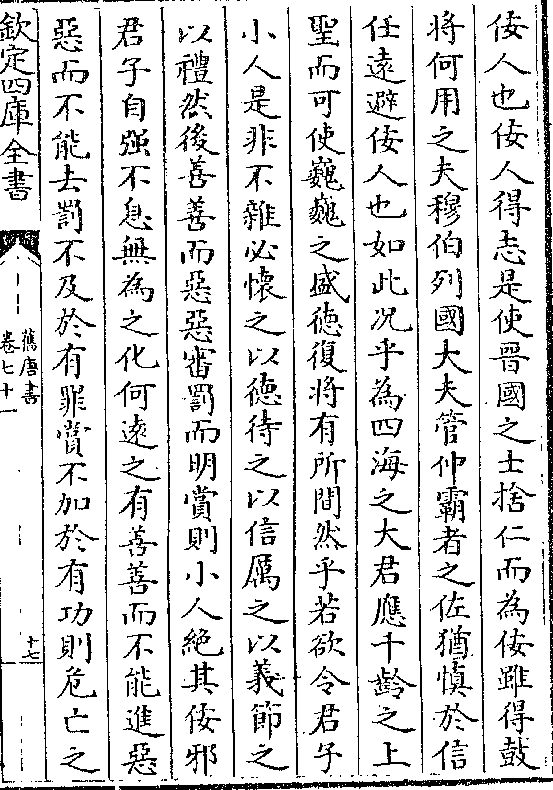 佞人也佞人得志是使晉國之士捨仁而為佞雖得鼓
将何用之夫穆伯列國大夫管仲霸者之佐猶慎於信
任逺避佞人也如此况乎為四海之大君應千齡之上
聖而可使巍巍之盛徳復將有所間然乎若欲令君子
小人是非不雜必懷之以徳待之以信厲之以義節之
以禮然後善善而惡惡審罰而明賞則小人絶其佞邪
君子自强不息無為之化何逺之有善善而不能進惡
惡而不能去罰不及於有罪賞不加於有功則危亡之
欽定四庫全書
舊唐書
卷七十一
十七